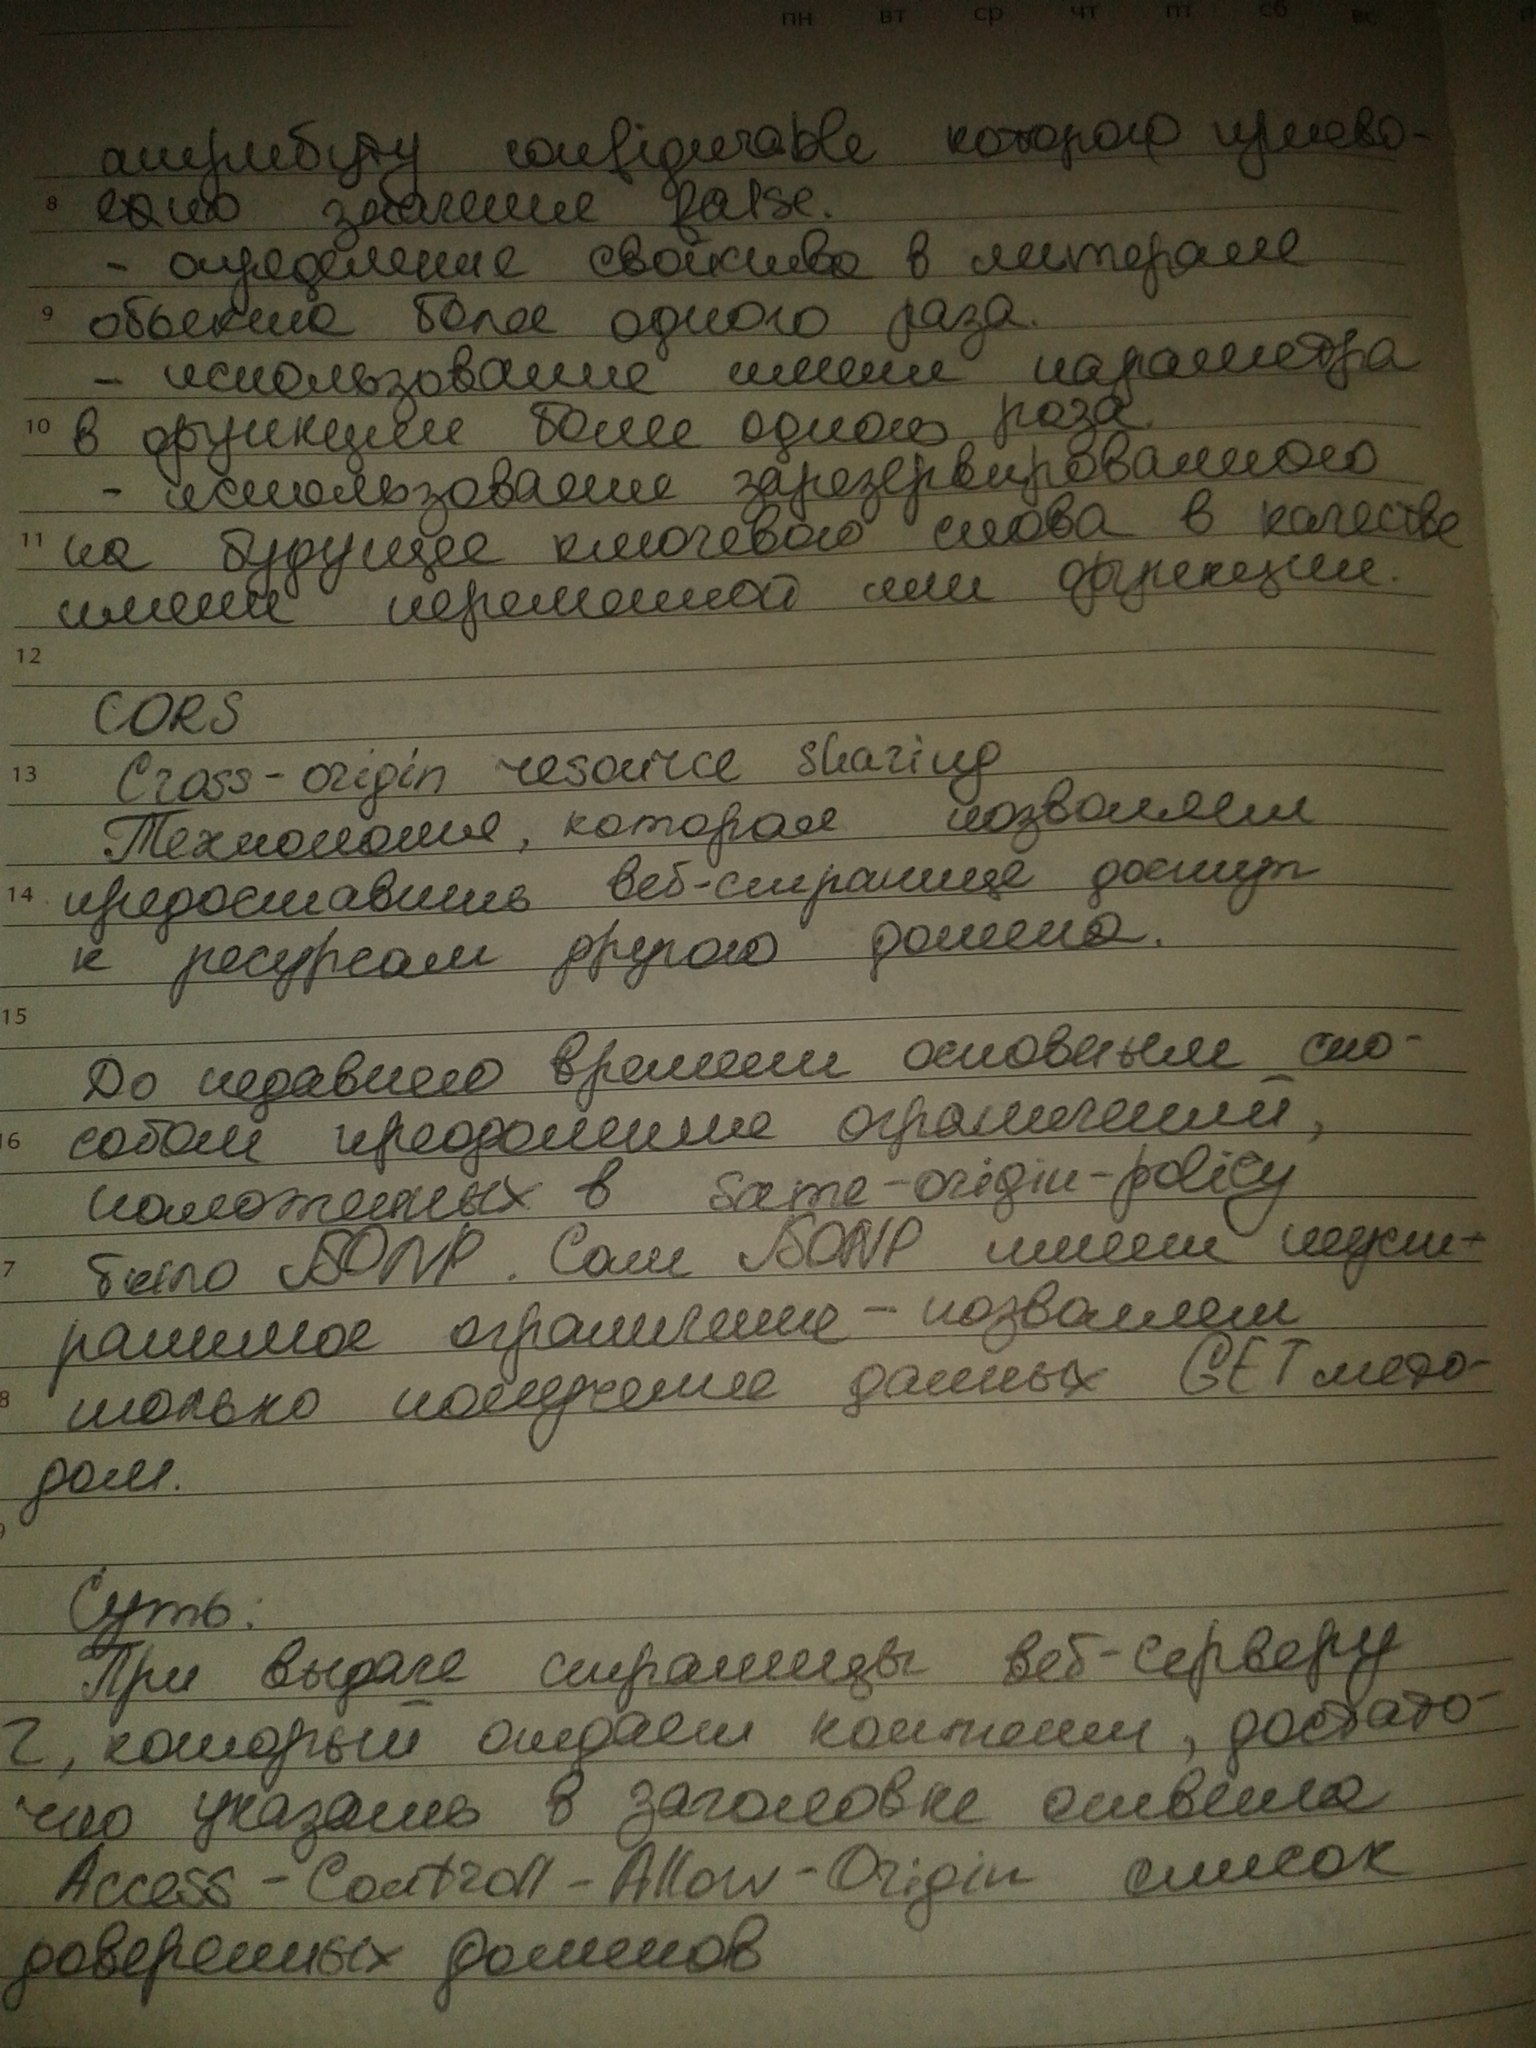 пн вт ср чт пт сб вс
атрибуту configurable которого присво-
8 ено значение false.
- определение свойства в литерале
9 объекта более одного раза.
- использование имени параметра
10 в функции более одного раза.
- использование зарезервированного
11 на будущее ключевого слова в качестве
имени переменной или функции.
12
CORS
13 Cross-origin resource sharing
Технология, которая позволяет
14 предоставить веб-странице доступ
к ресурсам другого домена.
15
До недавнего времени основным спо-
16 собом преодоления ограничений,
положенных в same-origin-policy
7 было JSONP. Сам JSONP имеет неуст-
ранимое ограничение - позволяет
8 только получение данных GET мето-
дом.
9
Суть:
При выдаче страницы веб-серверу
2, который отдает контент, достато-
чно указать в заголовке ответа
Access-Controll-Allow-Origin список
доверенных доменов